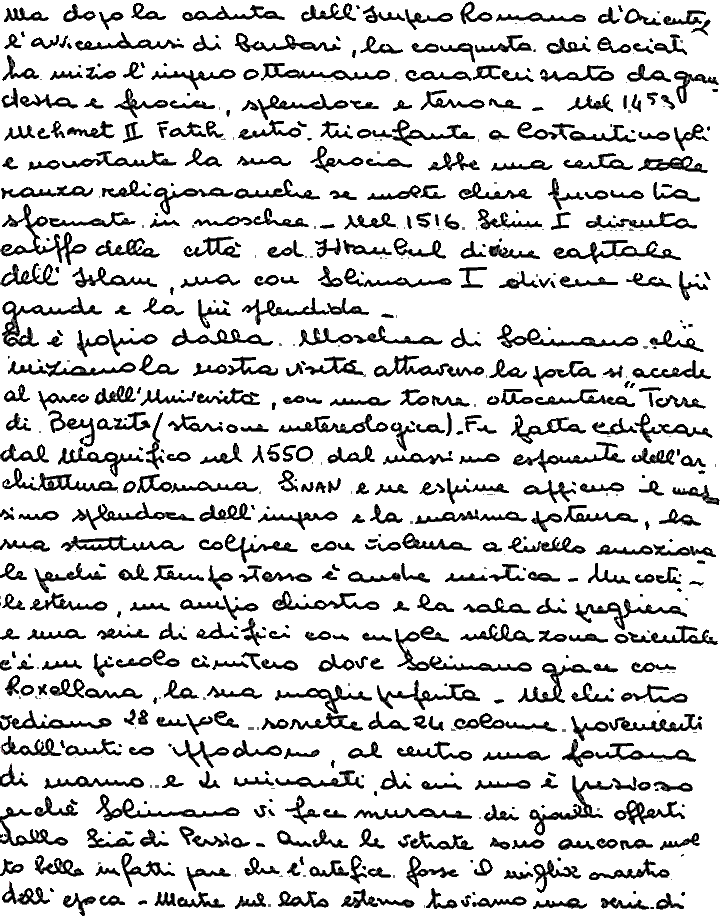 Ma dopo la caduta dell'Impero Romano d'Oriente,
l'avvicendarsi di Barbari, la conquista dei Crociati
ha inizio l'impero ottomano caratterizzato da gran
dezza e ferocia, splendore e terrore - Nel 1453
Mehmet II Fatih entrò trionfante a Costantinopoli
e nonostante la sua ferocia ebbe una certa tolle
ranza religiosa anche se molte chiese furono tra
sformate in moschee - Nel 1516 Selim I diventa
califfo della città ed Istanbul diviene capitale
dell'Islam, ma con Solimano I diviene la più
grande e la più splendida -
Ed è popio dalla Moschea di Solimano che
iniziamo la nostra visita attraverso la porta si accede
al parco dell'Università, con una torre ottocentesca "Torre
di Beyazit" (stazione metereologica). Fu fatta edificare
dal Magnifico nel 1550 dal massimo esponente dell'ar
chitettura ottomana SINAN e ne esprime appieno il mas
simo splendore dell'impero e la massima potenza, la
sua struttura colpisce con violenza a livello emoziona
le perchè al tempo stesso è anche mistica - Un corti-
le esterno, un ampio chiostro e la sala di preghiera
e una serie di edifici con cupole nella zona orientale
c'è un piccolo cimitero dove Solimano giace con
Roxellana, la sua moglie preferita - Nel chiostro
vediamo 28 cupole sorrette da 24 colonne provenienti
dall'antico ippodromo, al centro una fontana
di marmo e 4 minareti, di cui uno è prezioso
perchè Solimano vi fece murare dei gioielli offerti
dallo Scià di Persia - Anche le vetrate sono ancora mol
to belle infatti pare che l'artefice fosse il miglior maestro
dell'epoca - Mentre sul lato esterno troviamo una serie di